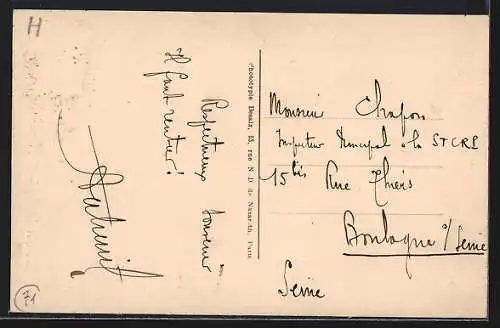 H
Respectueux souvenir
Il faut rentrer!
Phototypie Desaix, 13, rue N.-D. de Nazareth, Paris
Monsieur Chapon
Inspecteur Principal à la STCRP
15 bis Rue Thiers
Boulogne s/ Seine
Seine
71